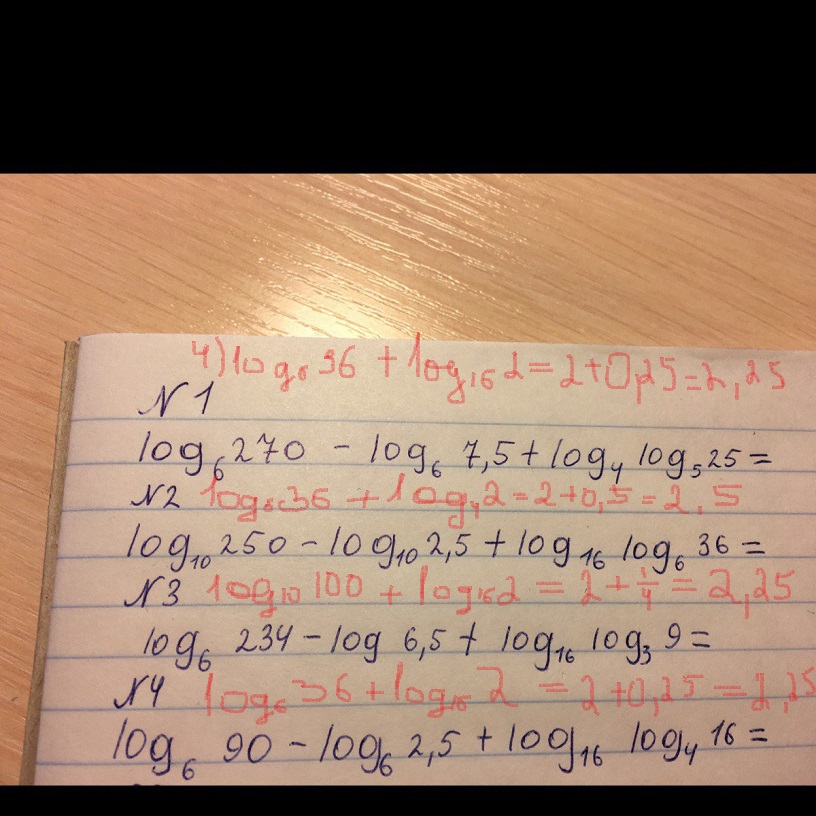 4) log₆ 36 + log₁₆ 2 = 2 + 0,25 = 2,25
N 1
log₆ 270 - log₆ 7,5 + log₄ log₅ 25 =
N2 log₆ 36 + log₄ 2 = 2 + 0,5 = 2,5
log₁₀ 250 - log₁₀ 2,5 + log₁₆ log₆ 36 =
N3 log₁₀ 100 + log₁₆ 2 = 2 + 1/4 = 2,25
log₆ 234 - log 6,5 + log₁₆ log₃ 9 =
N4 log₆ 36 + log₁₆ 2 = 2 + 0,25 = 2,25
log₆ 90 - log₆ 2,5 + log₁₆ log₄ 16 =